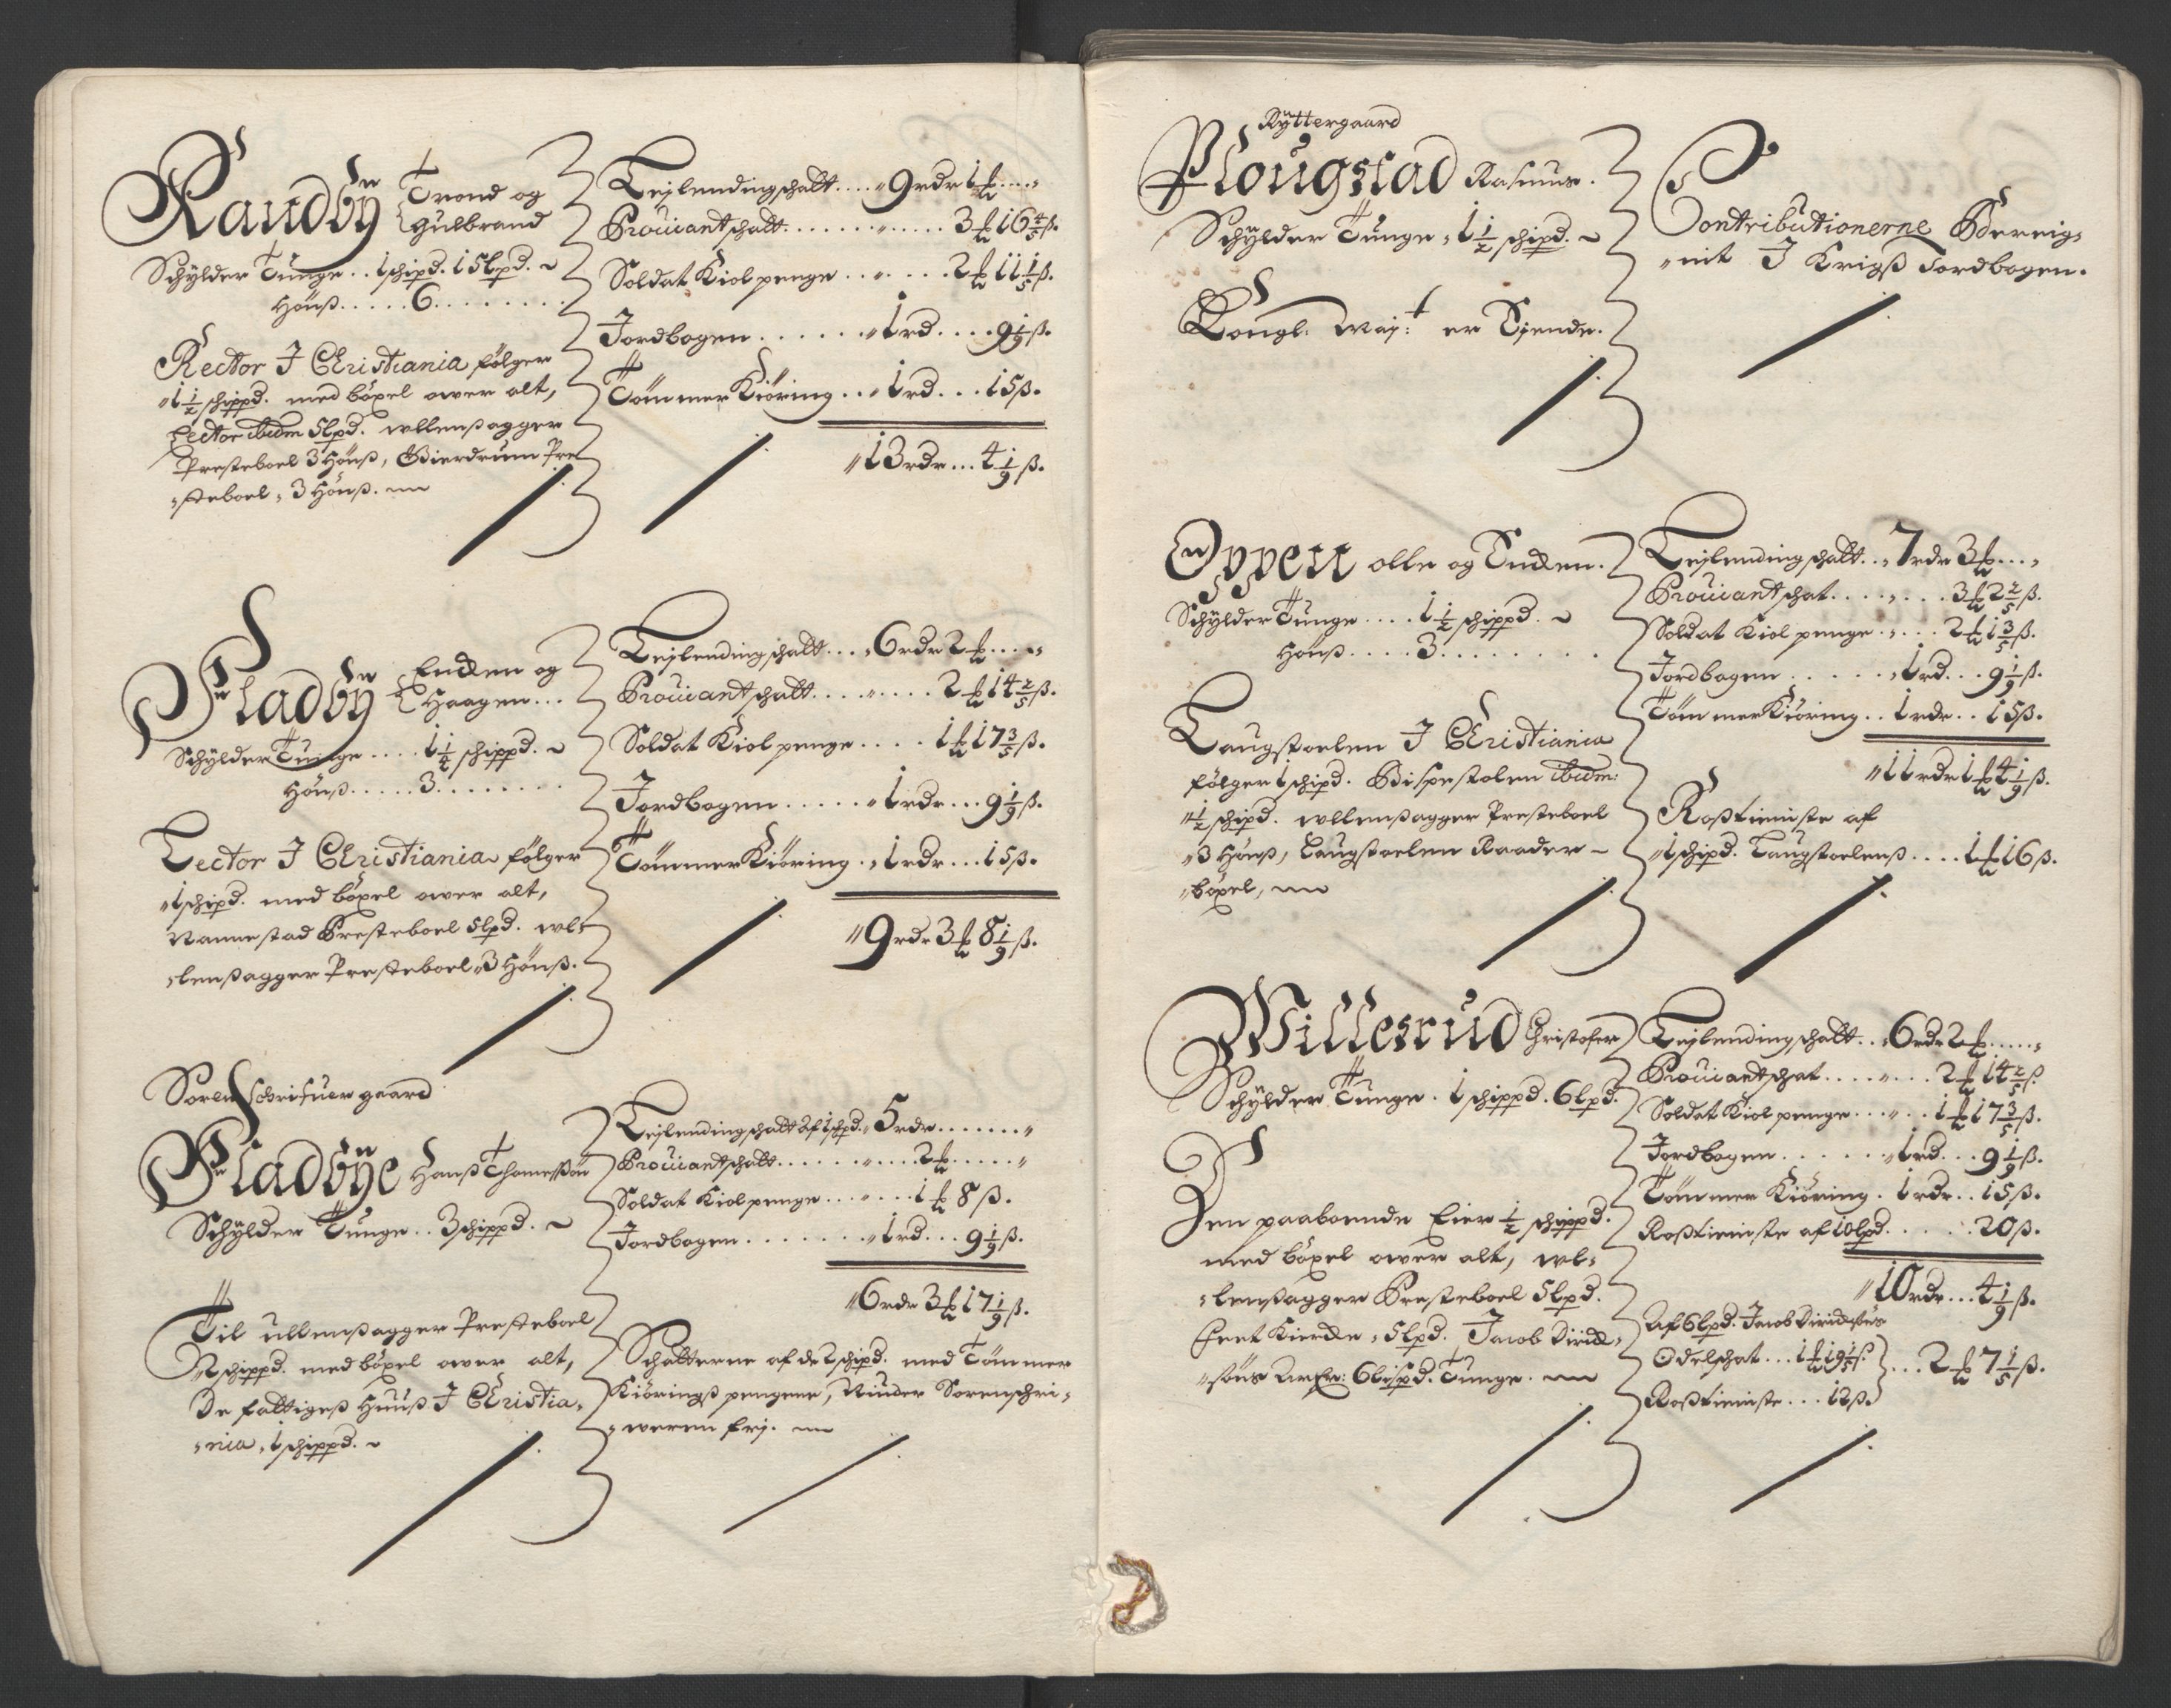 Randbÿ Trond og
Gulbrand
Schÿlder Tunge .. 1 schipd. 15 lpd. ~
Hönß ..... 6 ........
Rector I Christiania følger
1½ schippd. med böxel ower alt,
Lector ibidm 5 lpd. wllensagger
Presteboel 3 Hönß, Gierdrum Pre
steboel, 3 Hönß.
Lejlendingschatt .... 9 rdr 1 ₶ ....
Prouiantschatt ........... 3 ₶ 16 4/5 ß.
Soldat Kiolpenge ....... 2 ₶ 11 1/5 ß.
Jordbogen ...... 1 rd .... 9 1/9 ß.
Tömmer Kiöring ... 1 rd ... 15 ß.
13 rdr ... 4 1/9 ß.
Fladbÿ Endten og
Haagen ...
Schÿlder Tunge .... 1¼ schippd. ~
Hönß ..... 3 ........
Lector I Christiania følger
1 schipd. med böxel ower alt,
Nannestad Presteboel 5 lpd. wl-
lensagger Presteboel 3 Hönß.
Lejlendingschatt ... 6 rdr 2 ₶ ....
Prouiantschatt ........ 2 ₶ 14 2/5 ß.
Soldat Kiolpenge .... 1 ₶ 17 3/5 ß.
Jordbogen ..... 1 rdr ... 9 1/9 ß.
Tömmer Kiöring .. 1 rdr ... 15 ß.
9 rdr 3 ₶ 8 1/9 ß.
Soren Schrifuer gaard
Fladbÿe Hanß Thomessön
Schÿlder Tunge .. 3 schippd. ~
Til ullensagger Presteboel
2 schippd. med böxel ower alt,
De fattiges Huuß I Christia-
nia, 1 schippd. ~
Lejlendingschatt af 1 schpd. 5 rdr .......
Prouiantschatt ......... 2 ₶ .....
Soldat Kiolpenge ...... 1 ₶ 8 ß.
Jordbogen ....... 1 rd ... 9 1/9 ß.
6 rdr 3 ₶ 17 1/9 ß.
Schatterne af de 2 schipd. med Tömmer
Kiöringß pengene, Niuder Sorenschri-
weren frj.
Rÿttergaard
Plougstad Rasmus.
Schÿlder Tunge, 1½ schipd. ~
Kongl: Maj:t er Ejende.
Contributionerne Bereig-
nit I Krigß Jordbogen.
Oppen olle og Endten.
Schÿlder Tunge .... 1½ schippd. ~
Hönß .... 3 ........
Laugstoelen I Christiania
følger 1 schipd. Bispestolen ibidm:
½ schipd. wllensagger Presteboel
3 Hönß, Laugstoelen Raader ~
böxel,
Lejlendingschatt .. 7 rdr 3 ₶ ...
Prouiantschat ....... 3 ₶ 2 2/5 ß.
Soldat Kiolpenge .... 2 ₶ 1 3/5 ß.
Jordbogen ..... 1 rd ... 9 1/9 ß.
Tömmer Kiöring .. 1 rdr .. 15 ß.
11 rdr 1 ₶ 4 1/9 ß.
Roßtieniste af
1 schipd. Laugstoelens .... 1 ₶ 16 ß.
Willesrud Christofer
Schÿlder Tunge . 1 schippd. 6 lpd.
Den paaboende Eier ½ schippd.
med böxel ower alt, wl-
lensagger Presteboel 5 lpd.
Feet Kierche, 5 lpd. Jacob Dirich-
söns 6 lispd. Tunge.
Lejlendingschatt .. 6 rdr 2 ₶ .....
Prouiantschat ....... 2 ₶ 14 2/5 ß
Soldat Kiolpenge ..... 1 ₶ 17 3/5 ß.
Jordbogen ...... 1 rd ... 9 1/9 ß.
Tömmer Kiöring . 1 rdr .. 15 ß.
Roßtieniste af 10 lpd ...... 20 ß.
10 rdr ... 4 1/9 ß.
Af 6 lpd. Jacob Dirichsöns
Odelschat ... 1 ₶ 19 1/5 ß } ... 2 ₶ 7 1/5 ß.
Roßtieniste ... 12 ß.